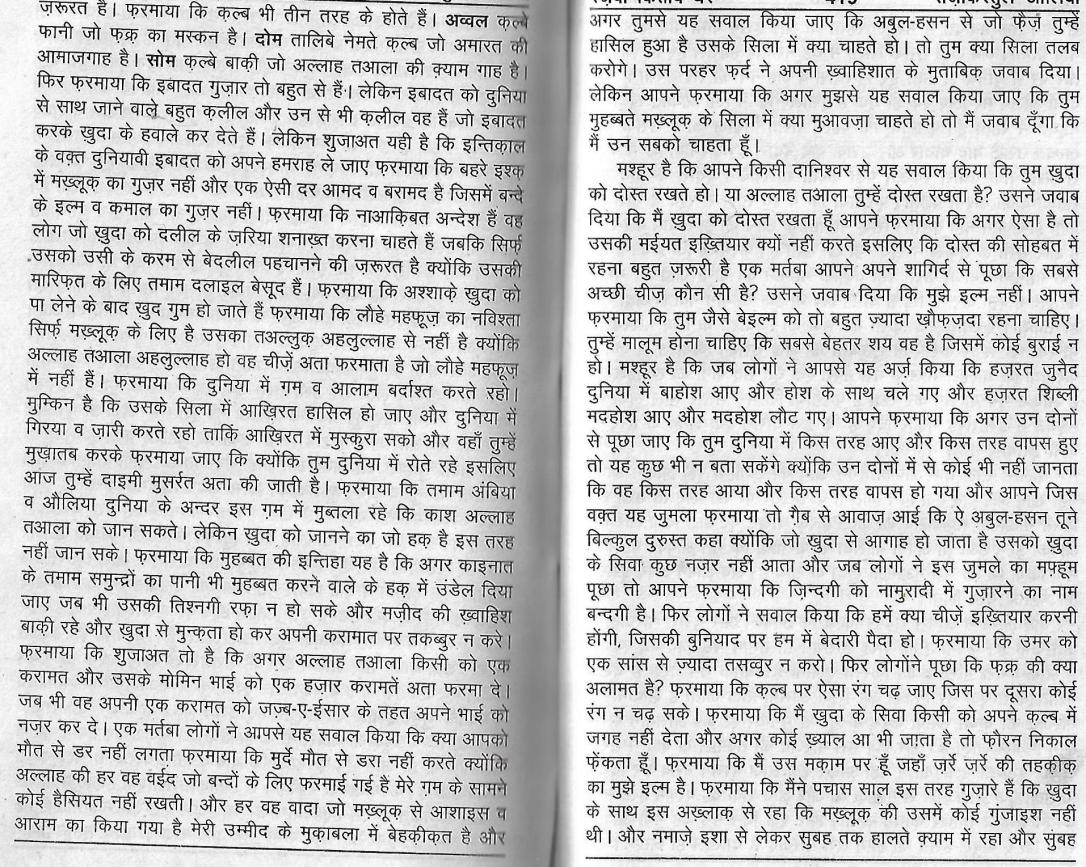 ज़रूरत है। फ़रमाया कि क़ल्ब भी तीन तरह के होते हैं। अव्वल क़ल्बे
फ़ानी जो फ़क़्र का मस्कन है। दोम तालिबे नेमते क़ल्ब जो अमारत की
आमाजगाह है। सोम क़ल्बे बाक़ी जो अल्लाह तआला की क़्याम गाह है।
फिर फ़रमाया कि इबादत गुज़ार तो बहुत से हैं। लेकिन इबादत को दुनिया
से साथ जाने वाले बहुत क़लील और उन से भी क़लील वह हैं जो इबादत
करके खुदा के हवाले कर देते हैं। लेकिन शुजाअत यही है कि इन्तिक़ाल
के वक़्त दुनियावी इबादत को अपने हमराह ले जाए फ़रमाया कि बहरे इश्क़
में मख़्लूक़ का गुज़र नहीं और एक ऐसी दर आमद व बरामद है जिसमें बन्दे
के इल्म व कमाल का गुज़र नहीं। फ़रमाया कि नाआक़िबत अन्देश हैं वह
लोग जो ख़ुदा को दलील के ज़रिया शनाख़्त करना चाहते हैं जबकि सिर्फ़
उसको उसी के करम से बेदलील पहचानने की ज़रूरत है क्योंकि उसकी
मारिफ़त के लिए तमाम दलाइल बेसूद हैं। फ़रमाया कि अश्शाक़े ख़ुदा को
पा लेने के बाद ख़ुद गुम हो जाते हैं फ़रमाया कि लौहे महफ़ूज़ का नविश्ता
सिर्फ़ मख़्लूक़ के लिए है उसका तअल्लुक़ अहलुल्लाह से नहीं है क्योंकि
अल्लाह तआला अहलुल्लाह हो वह चीज़ें अता फ़रमाता है जो लौहे महफ़ूज़
में नहीं हैं। फ़रमाया कि दुनिया में ग़म व आलाम बर्दाश्त करते रहो।
मुम्किन है कि उसके सिला में आख़िरत हासिल हो जाए और दुनिया में
गिरया व ज़ारी करते रहो ताकि आख़िरत में मुस्कुरा सको और वहाँ तुम्हें
मुख़ातब करके फ़रमाया जाए कि क्योंकि तुम दुनिया में रोते रहे इसलिए
आज तुम्हें दाइमी मुसर्रत अता की जाती है। फ़रमाया कि तमाम अंबिया
व औलिया दुनिया के अन्दर इस ग़म में मुब्तला रहे कि काश अल्लाह
तआला को जान सकते। लेकिन ख़ुदा को जानने का जो हक़ है इस तरह
नहीं जान सके। फ़रमाया कि मुहब्बत की इन्तिहा यह है कि अगर काइनात
के तमाम समुन्द्रों का पानी भी मुहब्बत करने वाले के हक़ में उंडेल दिया
जाए जब भी उसकी तिश्नगी रफ़ा न हो सके और मज़ीद की ख़्वाहिश
बाक़ी रहे और ख़ुदा से मुन्क़ता हो कर अपनी करामात पर तकब्बुर न करे।
फ़रमाया कि शुजाअत तो है कि अगर अल्लाह तआला किसी को एक
करामत और उसके मोमिन भाई को एक हज़ार करामतें अता फ़रमा दे।
जब भी वह अपनी एक करामत को जज़्ब-ए-ईसार के तहत अपने भाई को
नज़र कर दे। एक मर्तबा लोगों ने आपसे यह सवाल किया कि क्या आपको
मौत से डर नहीं लगता फ़रमाया कि मुर्दे मौत से डरा नहीं करते क्योंकि
अल्लाह की हर वह वईद जो बन्दों के लिए फ़रमाई गई है मेरे ग़म के सामने
कोई हैसियत नहीं रखती। और हर वह वादा जो मख़्लूक़ से आशाइस व
आराम का किया गया है मेरी उम्मीद के मुक़ाबला में बेहक़ीक़त है और
अगर तुमसे यह सवाल किया जाए कि अबुल-हसन से जो फ़ैज़ तुम्हें
हासिल हुआ है उसके सिला में क्या चाहते हो। तो तुम क्या सिला तलब
करोगे। उस परहर फ़र्द ने अपनी ख़्वाहिशात के मुताबिक़ जवाब दिया।
लेकिन आपने फ़रमाया कि अगर मुझसे यह सवाल किया जाए कि तुम
मुहब्बते मख़्लूक़ के सिला में क्या मुआवज़ा चाहते हो तो मैं जवाब दूँगा कि
मैं उन सबको चाहता हूँ।
मश्हूर है कि आपने किसी दानिश्वर से यह सवाल किया कि तुम ख़ुदा
को दोस्त रखते हो। या अल्लाह तआला तुम्हें दोस्त रखता है? उसने जवाब
दिया कि मैं ख़ुदा को दोस्त रखता हूँ आपने फ़रमाया कि अगर ऐसा है तो
उसकी मईयत इख़्तियार क्यों नहीं करते इसलिए कि दोस्त की सोहबत में
रहना बहुत ज़रूरी है एक मर्तबा आपने अपने शागिर्द से पूछा कि सबसे
अच्छी चीज़ कौन सी है? उसने जवाब दिया कि मुझे इल्म नहीं। आपने
फ़रमाया कि तुम जैसे बेइल्म को तो बहुत ज़्यादा ख़ौफ़ज़दा रहना चाहिए।
तुम्हें मालूम होना चाहिए कि सबसे बेहतर शय वह है जिसमें कोई बुराई न
हो। मश्हूर है कि जब लोगों ने आपसे यह अर्ज़ किया कि हज़रत जुनैद
दुनिया में बाहोश आए और होश के साथ चले गए और हज़रत शिब्ली
मदहोश आए और मदहोश लौट गए। आपने फ़रमाया कि अगर उन दोनों
से पूछा जाए कि तुम दुनिया में किस तरह आए और किस तरह वापस हुए
तो यह कुछ भी न बता सकेंगे क्योंकि उन दोनों में से कोई भी नहीं जानता
कि वह किस तरह आया और किस तरह वापस हो गया और आपने जिस
वक़्त यह जुमला फ़रमाया तो ग़ैब से आवाज़ आई कि ऐ अबुल-हसन तूने
बिल्कुल दुरुस्त कहा क्योंकि जो ख़ुदा से आगाह हो जाता है उसको ख़ुदा
के सिवा कुछ नज़र नहीं आता और जब लोगों ने इस जुमले का मफ़्हूम
पूछा तो आपने फ़रमाया कि ज़िन्दगी को नामुरादी में गुज़ारने का नाम
बन्दगी है। फिर लोगों ने सवाल किया कि हमें क्या चीज़ें इख़्तियार करनी
होंगी, जिसकी बुनियाद पर हम में बेदारी पैदा हो। फ़रमाया कि उमर को
एक सांस से ज़्यादा तसव्वुर न करो। फिर लोगोंने पूछा कि फ़क़्र की क्या
अलामत है? फ़रमाया कि क़ल्ब पर ऐसा रंग चढ़ जाए जिस पर दूसरा कोई
रंग न चढ़ सके। फ़रमाया कि मैं ख़ुदा के सिवा किसी को अपने क़ल्ब में
जगह नहीं देता और अगर कोई ख़्याल आ भी जाता है तो फ़ौरन निकाल
फेंकता हूँ। फ़रमाया कि मैं उस मक़ाम पर हूँ जहाँ ज़र्रे ज़र्रे की तहक़ीक़
का मुझे इल्म है। फ़रमाया कि मैंने पचास साल इस तरह गुज़ारे हैं कि ख़ुदा
के साथ इस अख़्लाक़ से रहा कि मख़्लूक़ की उसमें कोई गुंजाइश नहीं
थी। और नमाज़े इशा से लेकर सुबह तक हालते क़्याम में रहा और सुबह